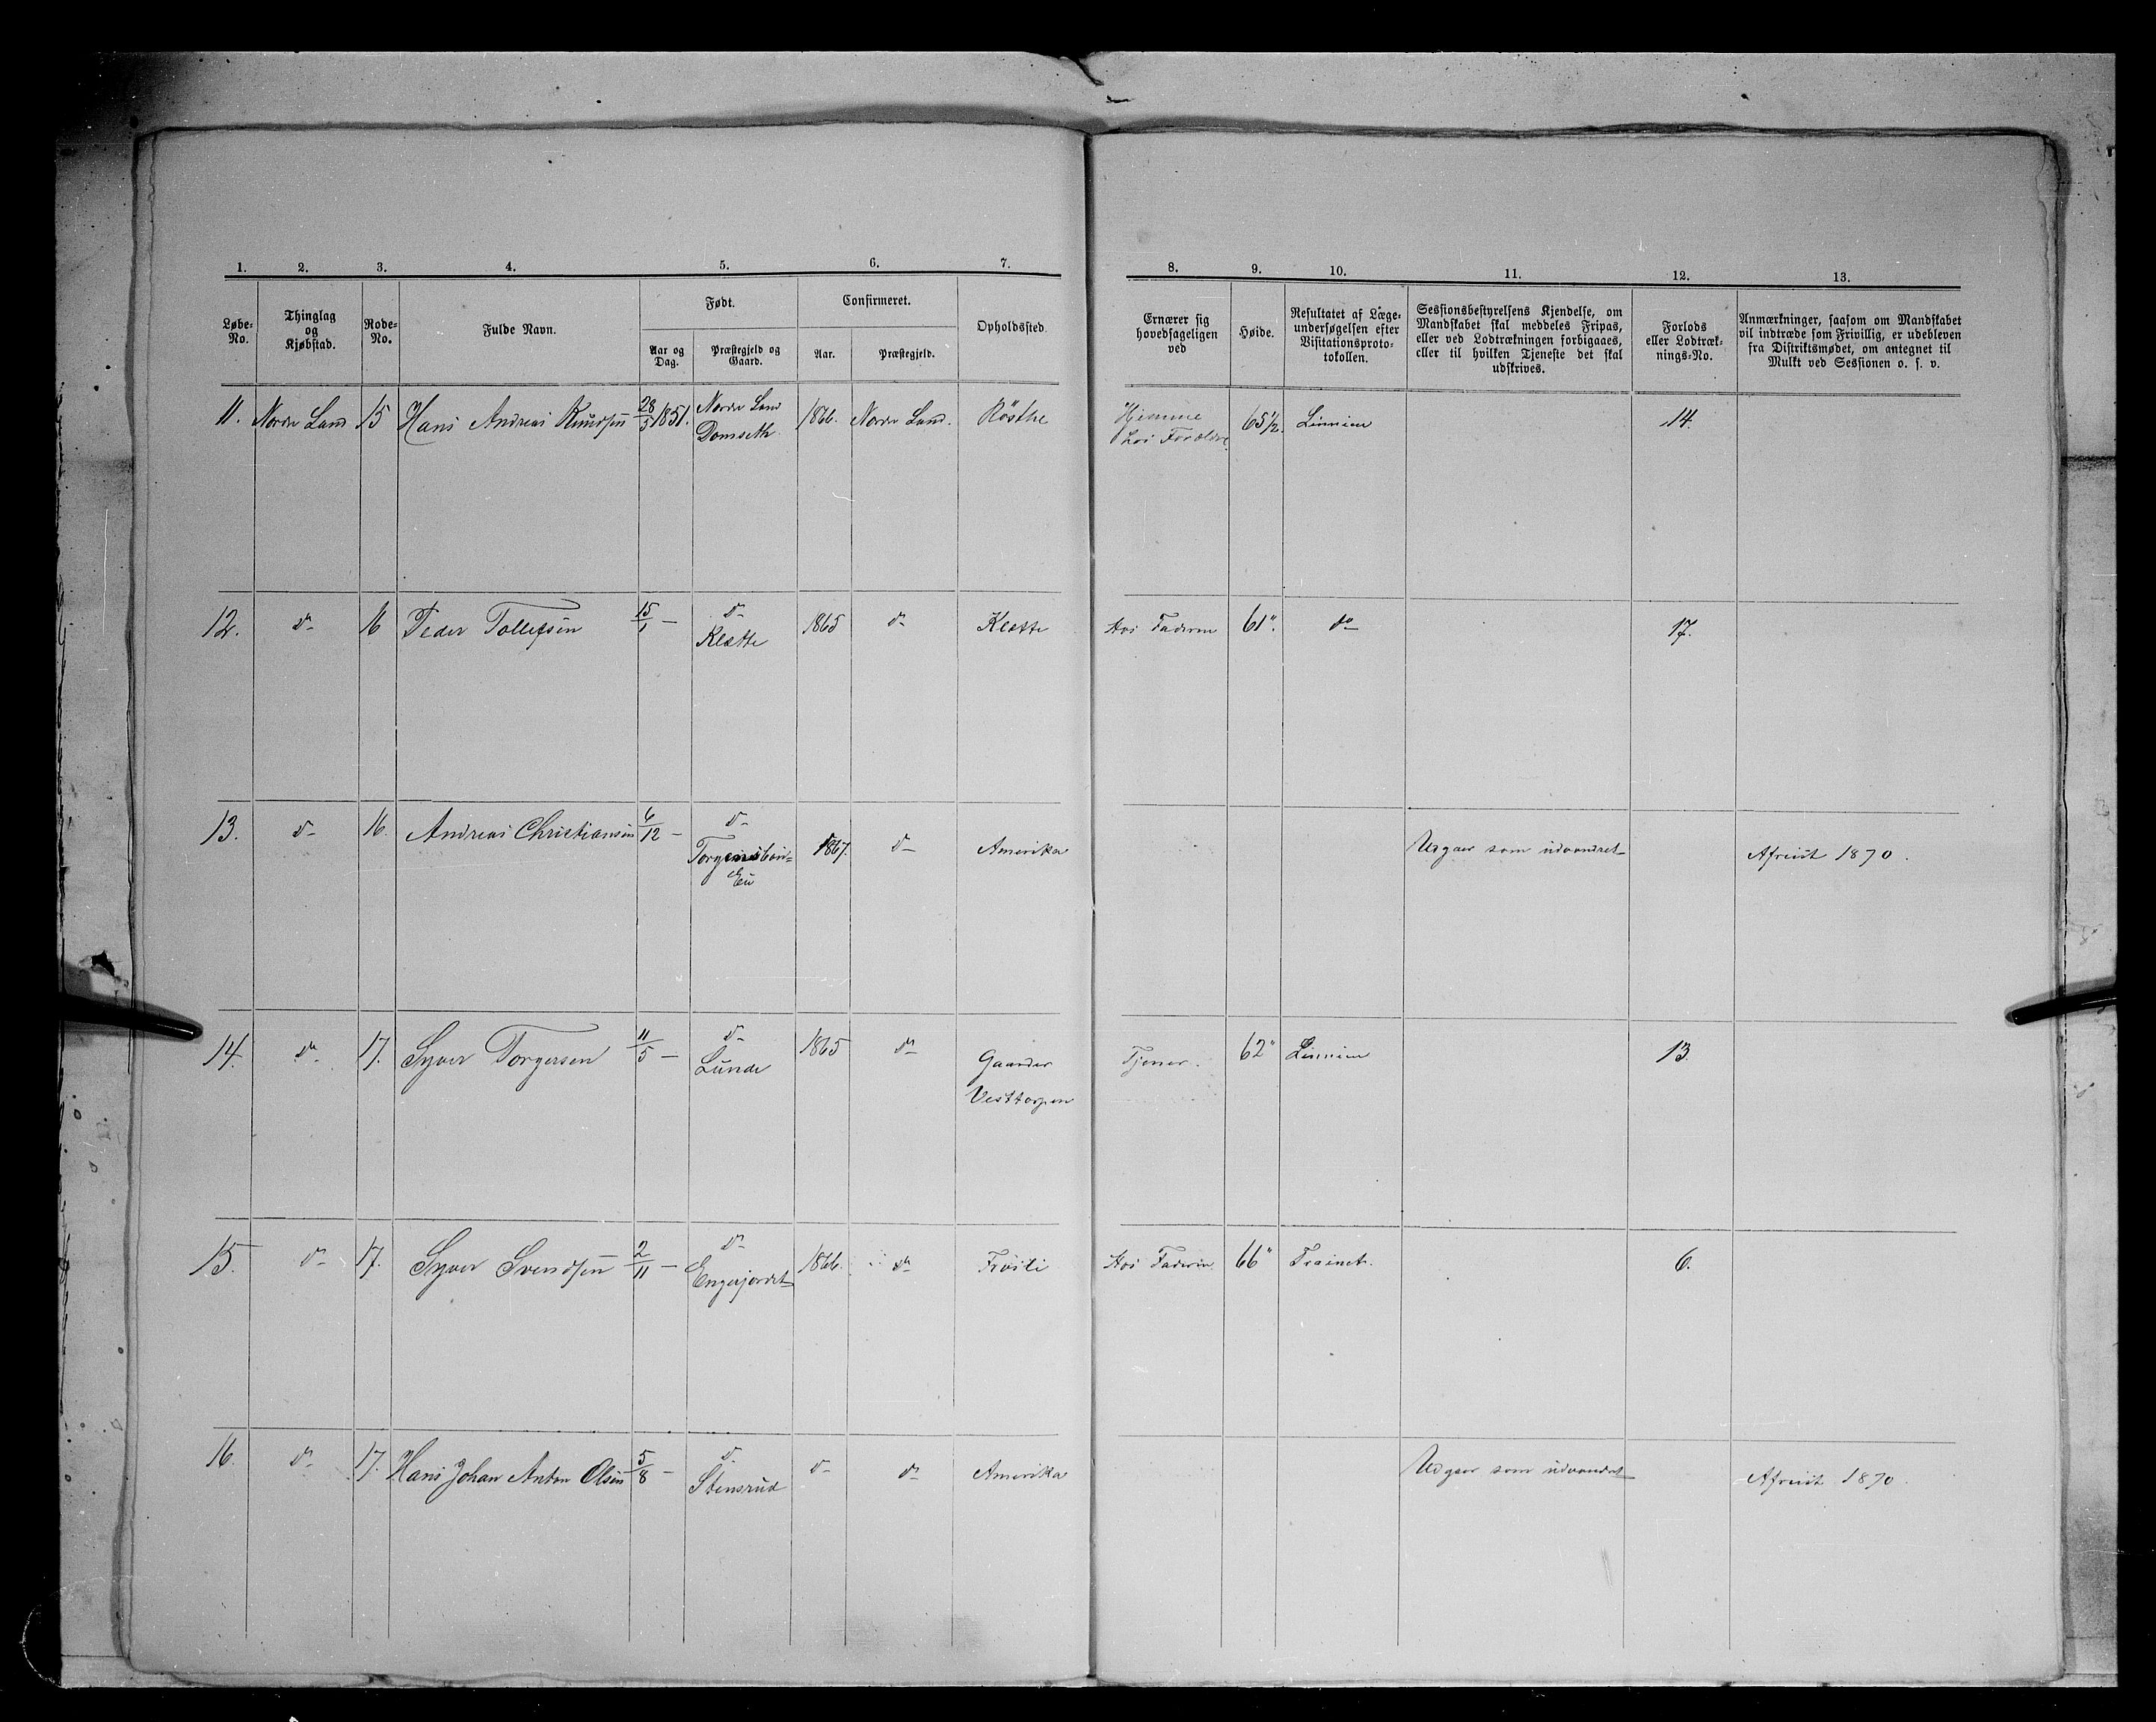 1. 2. 3. 4. 5. 6. 7. 8. 9. 10. 11. 12. 13.
Løbe-No. | Thinglag og Kjøbstad. | Rode-No. | Fulde Navn. | Født. Aar og Dag. | Præstegjeld og Gaard. | Confirmeret. Aar. | Præstegjeld. | Opholdssted. | Ernærer sig hovedsageligen ved | Høide. | Resultatet af Læge-undersøgelsen efter Visitationsproto-tokollen. | Sessionsbestyrelsens Kjendelse, om Mandskabet skal meddeles Fripas, eller ved Lodtrækningen forbigaaes, eller til hvilken Tjeneste det skal udskrives. | Forlods eller Lodtræk-nings-No. | Anmærkninger, saasom om Mandskabet vil indtræde som Frivillig, er udebleven fra Distriktsmødet, om antegnet til Mulkt ved Sessionen o. s. v.
11. Nordre Land 15 Hans Andreas Knudsen 28/5 1851. Nordre Land Domseth 1866. Nordre Land. Rösthe Hjemme hos Forældre 65 1/2. Linnien 14.
12. do 16 Peder Tollefsen 15/1 — do Klætte 1865 do Klætte Hos Faderen 61". do 17.
13. do 16. Andreas Christiansen 6/12 — do 1867. do Amerika Udgaar som udvandret Afreist 1870.
14. do 17. Syver Torgersen 11/5 — do Lunde 1865 do Gaarder Vesttorpen Tjener. 62" Linnien 13
15. do 17. Syver Svendsen 2/11 — do Engejordet 1866. do Fröisli Hos Faderen. 66" Trainet. 6.
16. do 17. Hans Johan Anton Olsen 5/8 — do Stensrud do do Amerika Udgaar som udvandret Afreist 1870.